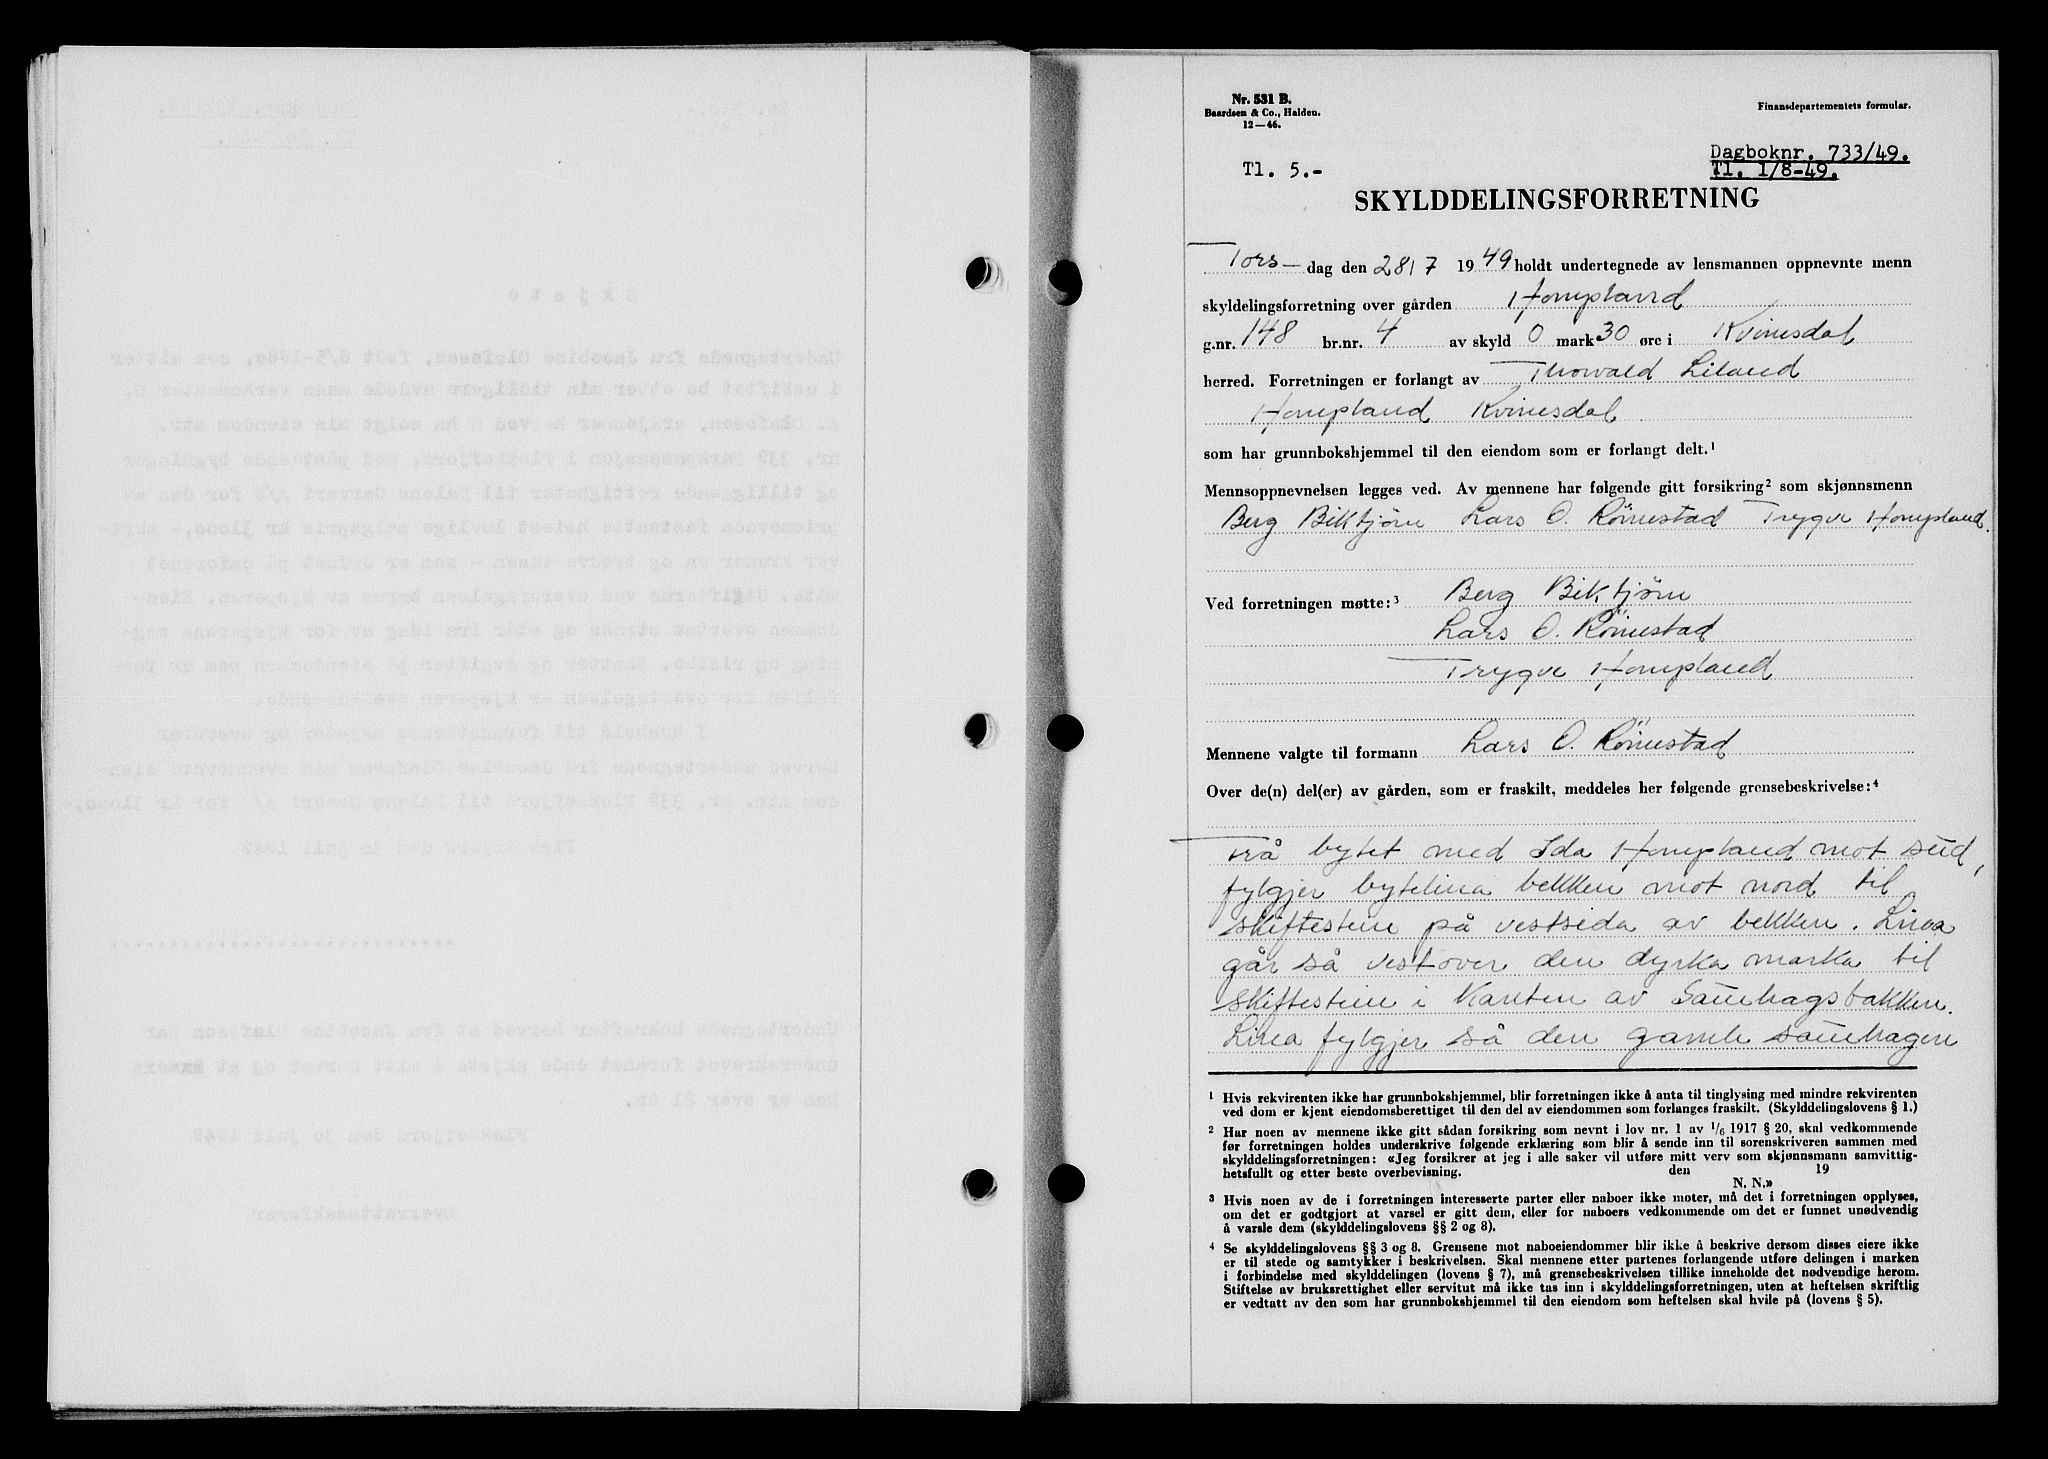 Nr. 531 B.
Baardsen & Co., Halden.
12—46.
Finansdepartementets formular.
Dagboknr. 733/49.
Tl. 1/8-49.
Tl. 5.-
SKYLDDELINGSFORRETNING
Tors- dag den 28/7 1949 holdt undertegnede av lensmannen oppnevnte menn
skylddelingsforretning over gården Hompland
g.nr. 148 br.nr. 4 av skyld 0 mark 30 øre i Kvinesdal
herred. Forretningen er forlangt av Thorvald Liland
Hompland Kvinesdal
som har grunnbokshjemmel til den eiendom som er forlangt delt.¹
Mennsoppnevnelsen legges ved. Av mennene har følgende gitt forsikring² som skjønnsmenn
Berg Biktjørn Lars O. Römestad Trygve Hompland.
Ved forretningen møtte:³ Berg Biktjørn
Lars O. Römestad
Trygve Hompland
Mennene valgte til formann Lars O. Römestad
Over de(n) del(er) av gården, som er fraskilt, meddeles her følgende grensebeskrivelse:⁴
Frå bytet med Ida Hompland mot sud,
fylgjer bytelina bekken mot nord til
skiftestein på vestsida av bekken. Linea
går så vestover den dyrka marka til
skiftestein i kanten av Sauehagsbakken.
Linea fylgjer så den gamle sauehagen
¹ Hvis rekvirenten ikke har grunnbokshjemmel, blir forretningen ikke å anta til tinglysing med mindre rekvirenten
ved dom er kjent eiendomsberettiget til den del av eiendommen som forlanges fraskilt. (Skylddelingslovens § 1.)
² Har noen av mennene ikke gitt sådan forsikring som nevnt i lov nr. 1 av 1/6 1917 § 20, skal vedkommende
før forretningen holdes underskrive følgende erklæring som blir å sende inn til sorenskriveren sammen med
skylddelingsforretningen: «Jeg forsikrer at jeg i alle saker vil utføre mitt verv som skjønnsmann samvittig-
hetsfullt og etter beste overbevisning. den 19
N. N.»
³ Hvis noen av de i forretningen interesserte parter eller naboer ikke møter, må det i forretningen opplyses,
om det er godtgjort at varsel er gitt dem, eller for naboers vedkommende om det er funnet unødvendig
å varsle dem (skylddelingslovens §§ 2 og 8).
⁴ Se skylddelingslovens §§ 3 og 8. Grensene mot naboeiendommer blir ikke å beskrive dersom disses eiere ikke
er til stede og samtykker i beskrivelsen. Skal mennene etter partenes forlangende utføre delingen i marken
i forbindelse med skylddelingen (lovens § 7), må grensebeskrivelsen tillike inneholde det nødvendige herom.
Stiftelse av bruksrettighet eller servitut må ikke tas inn i skylddelingsforretningen, uten at heftelsen skriftlig
er vedtatt av den som har grunnbokshjemmel til den eiendom som heftelsen skal hvile på (lovens § 5).